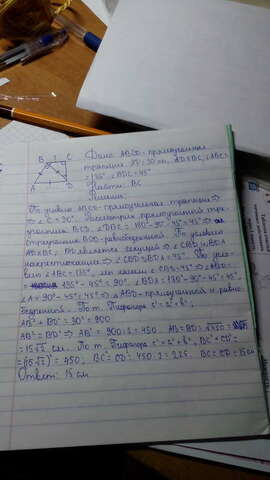 B 1 C
A D
Дано: ABCD - прямоугольная
трапеция. AD = 30 см, AD∥BC, ∠ABC=
=135° ∠BDC=45°
Найти: BC
Решение:
По условию ABCD-прямоугольная трапеция ⇒
⇒ ∠C = 90°. Рассмотрим прямоугольный тре-
угольник BCD. ∠DBC = 180°-90°-45°=45° ⇒
треугольник BCD-равнобедренный. По условию
AD∥BC, BD является секущей ⇒ ∠CBD и ∠BDA
накрестлежащие ⇒ ∠CBD=∠BDA = 45°. По усло-
вию ∠ABC=135°, ∠CBD=45° ⇒ ∠ABD=
= 135°-45° = 90°. ∠BDA =
∠A = 90°-45°=45° ⇒ ∠ABD-прямоугольный и равно-
бедренный. По т. Пифагора c²=a²+b²,
AB²+BD² = 30² = 900
AB²=BD² ⇒ AB² = 900:2 = 450 AB=BD= √450 =
= 15√2 см. По т. Пифагора c²=a²+b², BC²+CD²=
=(15√2)² = 450, BC²=CD²=450:2=225 BC=CD=15 см
Ответ: 15 см